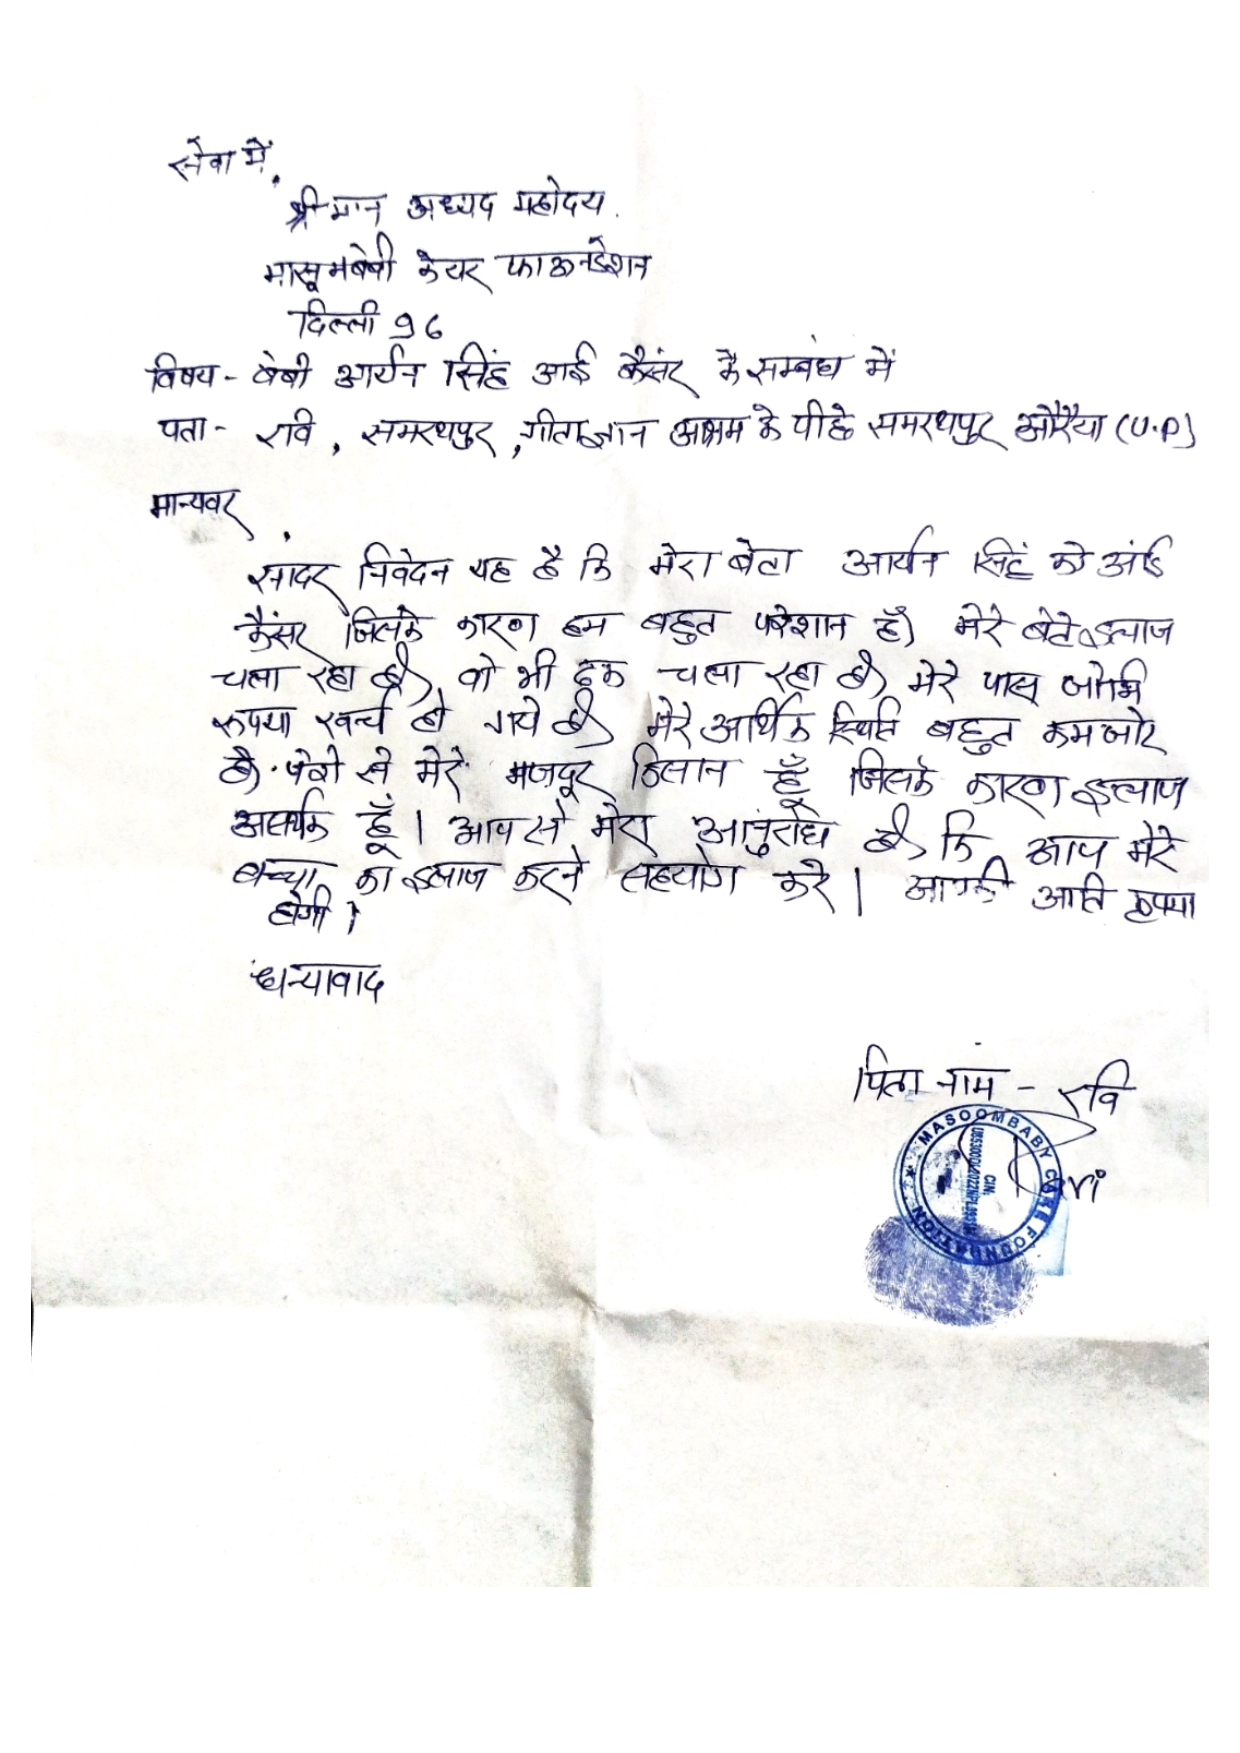 सेवा में,
श्रीमान अध्यद महोदय.
मासूमबेबी केयर फाऊनडेशन
दिल्ली 96
विषय - बेबी आर्यन सिंह आई कैसंर के सम्बंध में
पता - रवि, समरथपुर, गीता ज्ञान आश्रम के पीछे समरथपुर औरैया (U.P)
मान्यवर,
सादर निवेदन यह है कि मेरा बेटा आर्यन सिंह को आई
कैंसर जिसके कारण हम बहुत परेशान हैं, मेरे बेटे इलाज
चला रहा है, वो भी चला रहा है, मेरे पास जोभि
रूपया खर्च हो गये है, मेरे आर्थिक स्थिति बहुत कमजोर
है. पेशे से मेरे मजदूर किसान हूँ जिसके कारण इलाज
असर्थक हूँ। आप से मेरा आनुरोध है, कि आप मेरे
बच्चा का इलाज करने सहयोग करे। आपकी आति कृपया
होगी।
धन्यावाद
पिता नाम - रवि
Ravi
MASOOMBABY CARE FOUNDATION
CIN